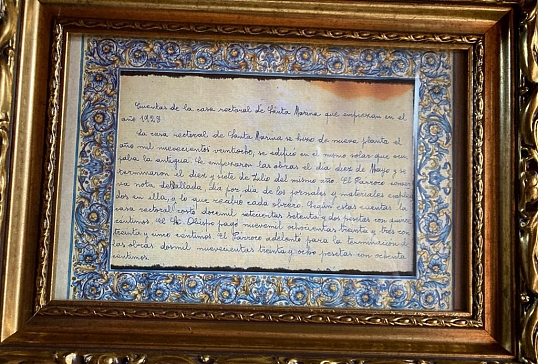 Cuentas de la casa rectoral de Santa Marina que empiezan en el
año 1928
La casa rectoral de Santa Marina se hizo de nueva planta el
año mil nuevecientos veintiocho, se edificó en el mismo solar que ocu-
paba la antigua. Se empezaron las obras el día diez de Mayo y se
terminaron el diez y siete de Julio del mismo año. El Párroco conser-
va nota detallada día por día de los jornales y materiales emplea-
dos en ella, y lo que cada obrero. Según estas cuentas la
casa rectoral costó docemil setecientas setenta y dos pesetas con
céntimos. El Sr. Obispo pagó nuevemil ochocientas treinta y tres con
treinta y un céntimos. El Párroco adelantó para la terminación de
las obras dosmil nuevecientas treinta y ocho pesetas con ochenta
céntimos.